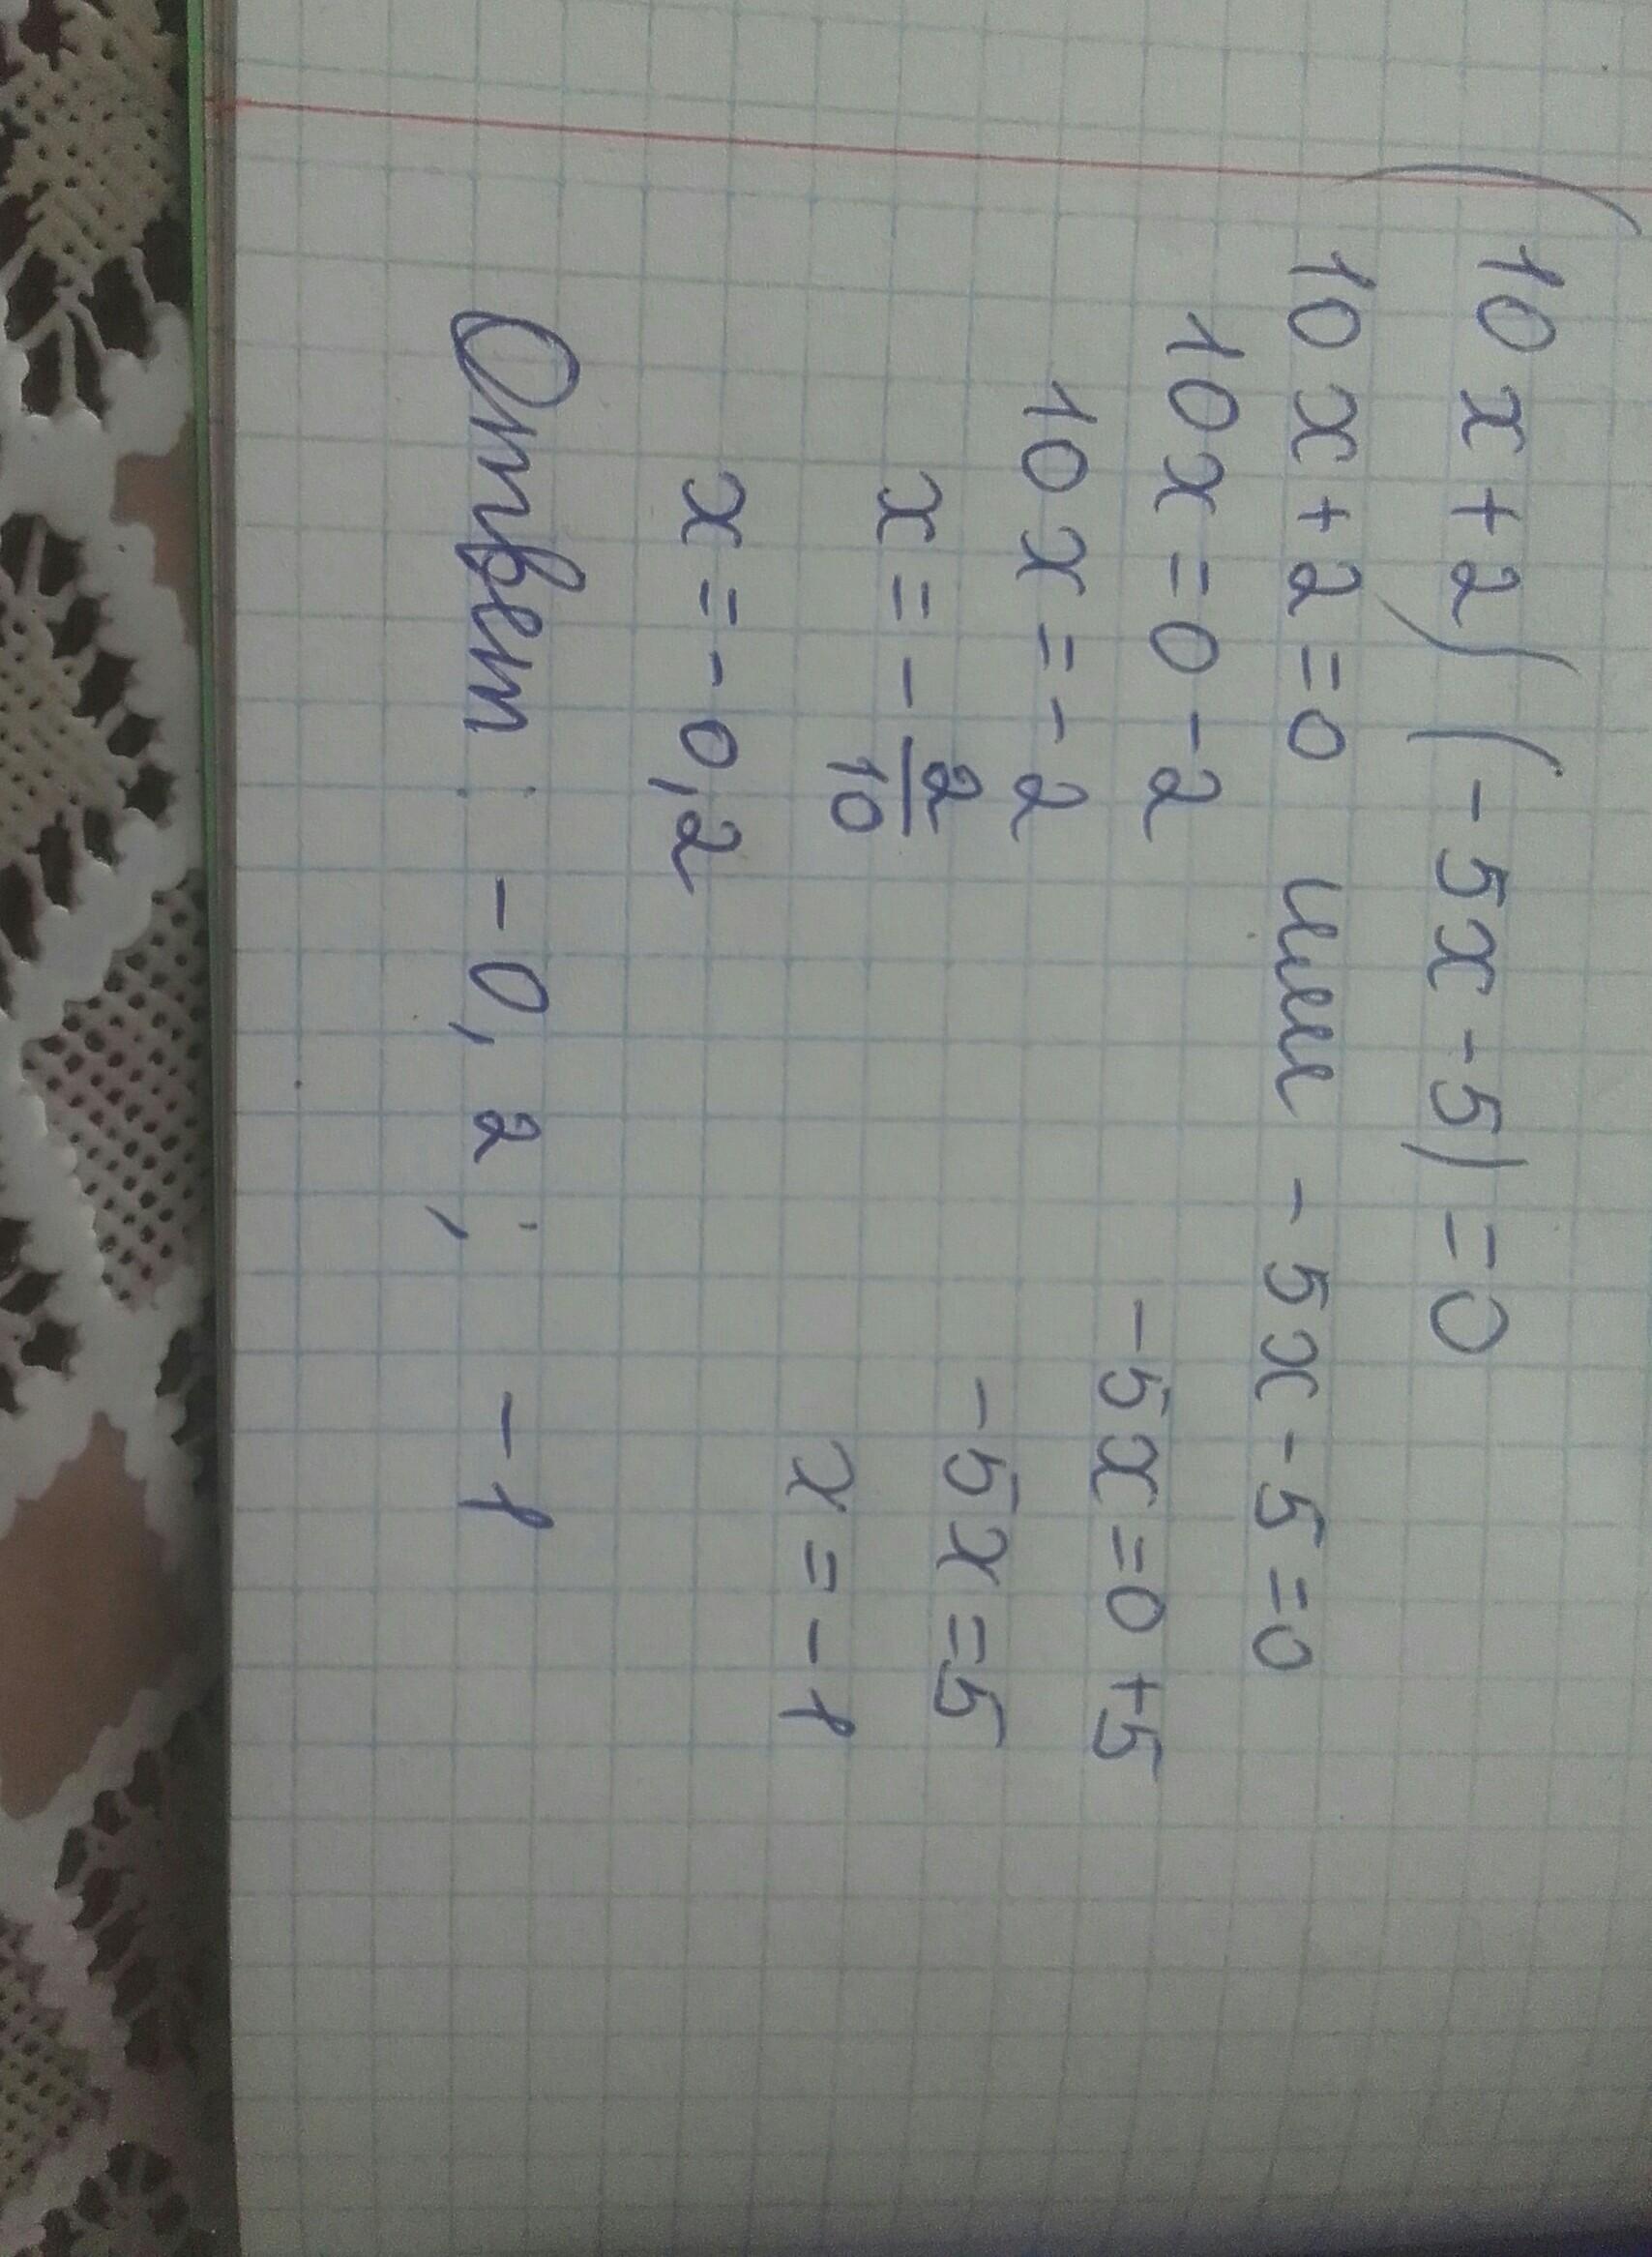 (10x+2)(-5x-5)=0
10x+2=0 или -5x-5=0
10x=0-2 -5x=0+5
10x=-2 -5x=5
x=-2/10 x=-1
x=-0,2
Ответ: -0,2; -1